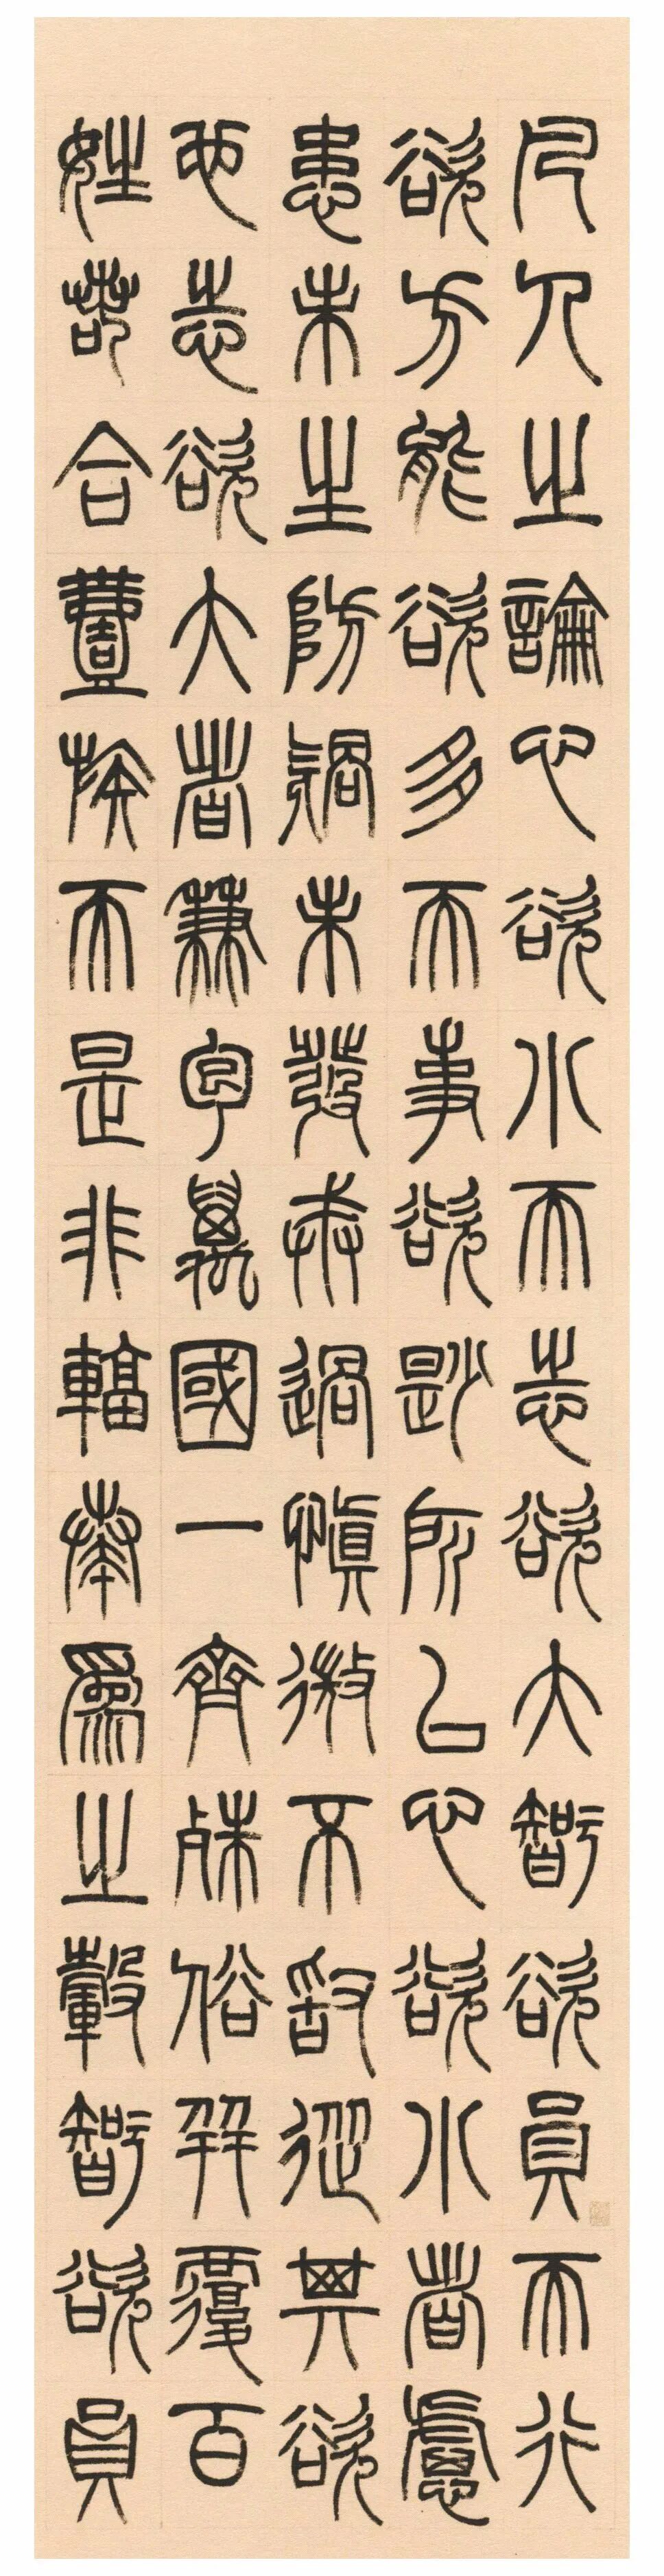 凡人之論心欲小而志欲大智欲員而行
欲方能欲多而事欲尟所以心欲小者慮
患未生防禍未發戒過慎微不敢從其欲
也志欲大者兼包萬國一齊殊俗并覆百
姓若合壹族而是非輻奏為之轂智欲員